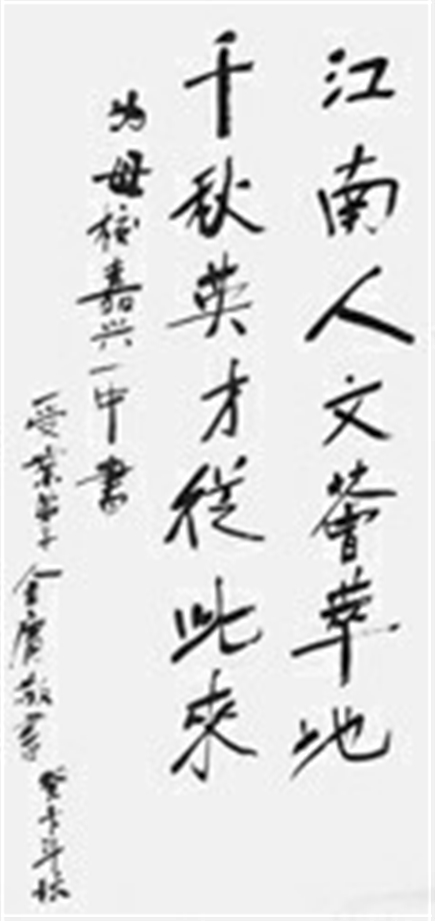 江南人文薈萃地
千秋英才從此來
为母校嘉兴一中書
受業弟子
金庸敬書